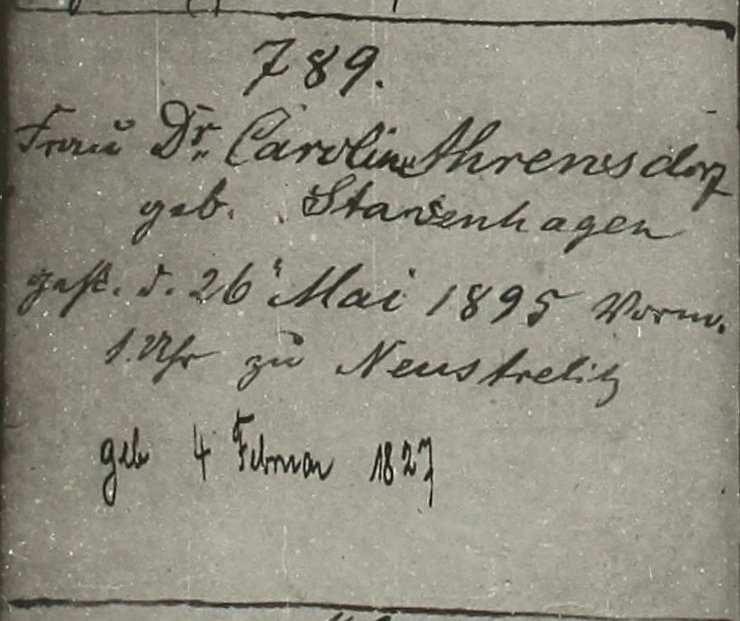 789.
Frau Dr. Caroline Ahrensdorf
geb. Stavenhagen
gest. d. 26' Mai 1895 Vorm.
1. Uhr zu Neustrelitz
geb 4 Februar 1827